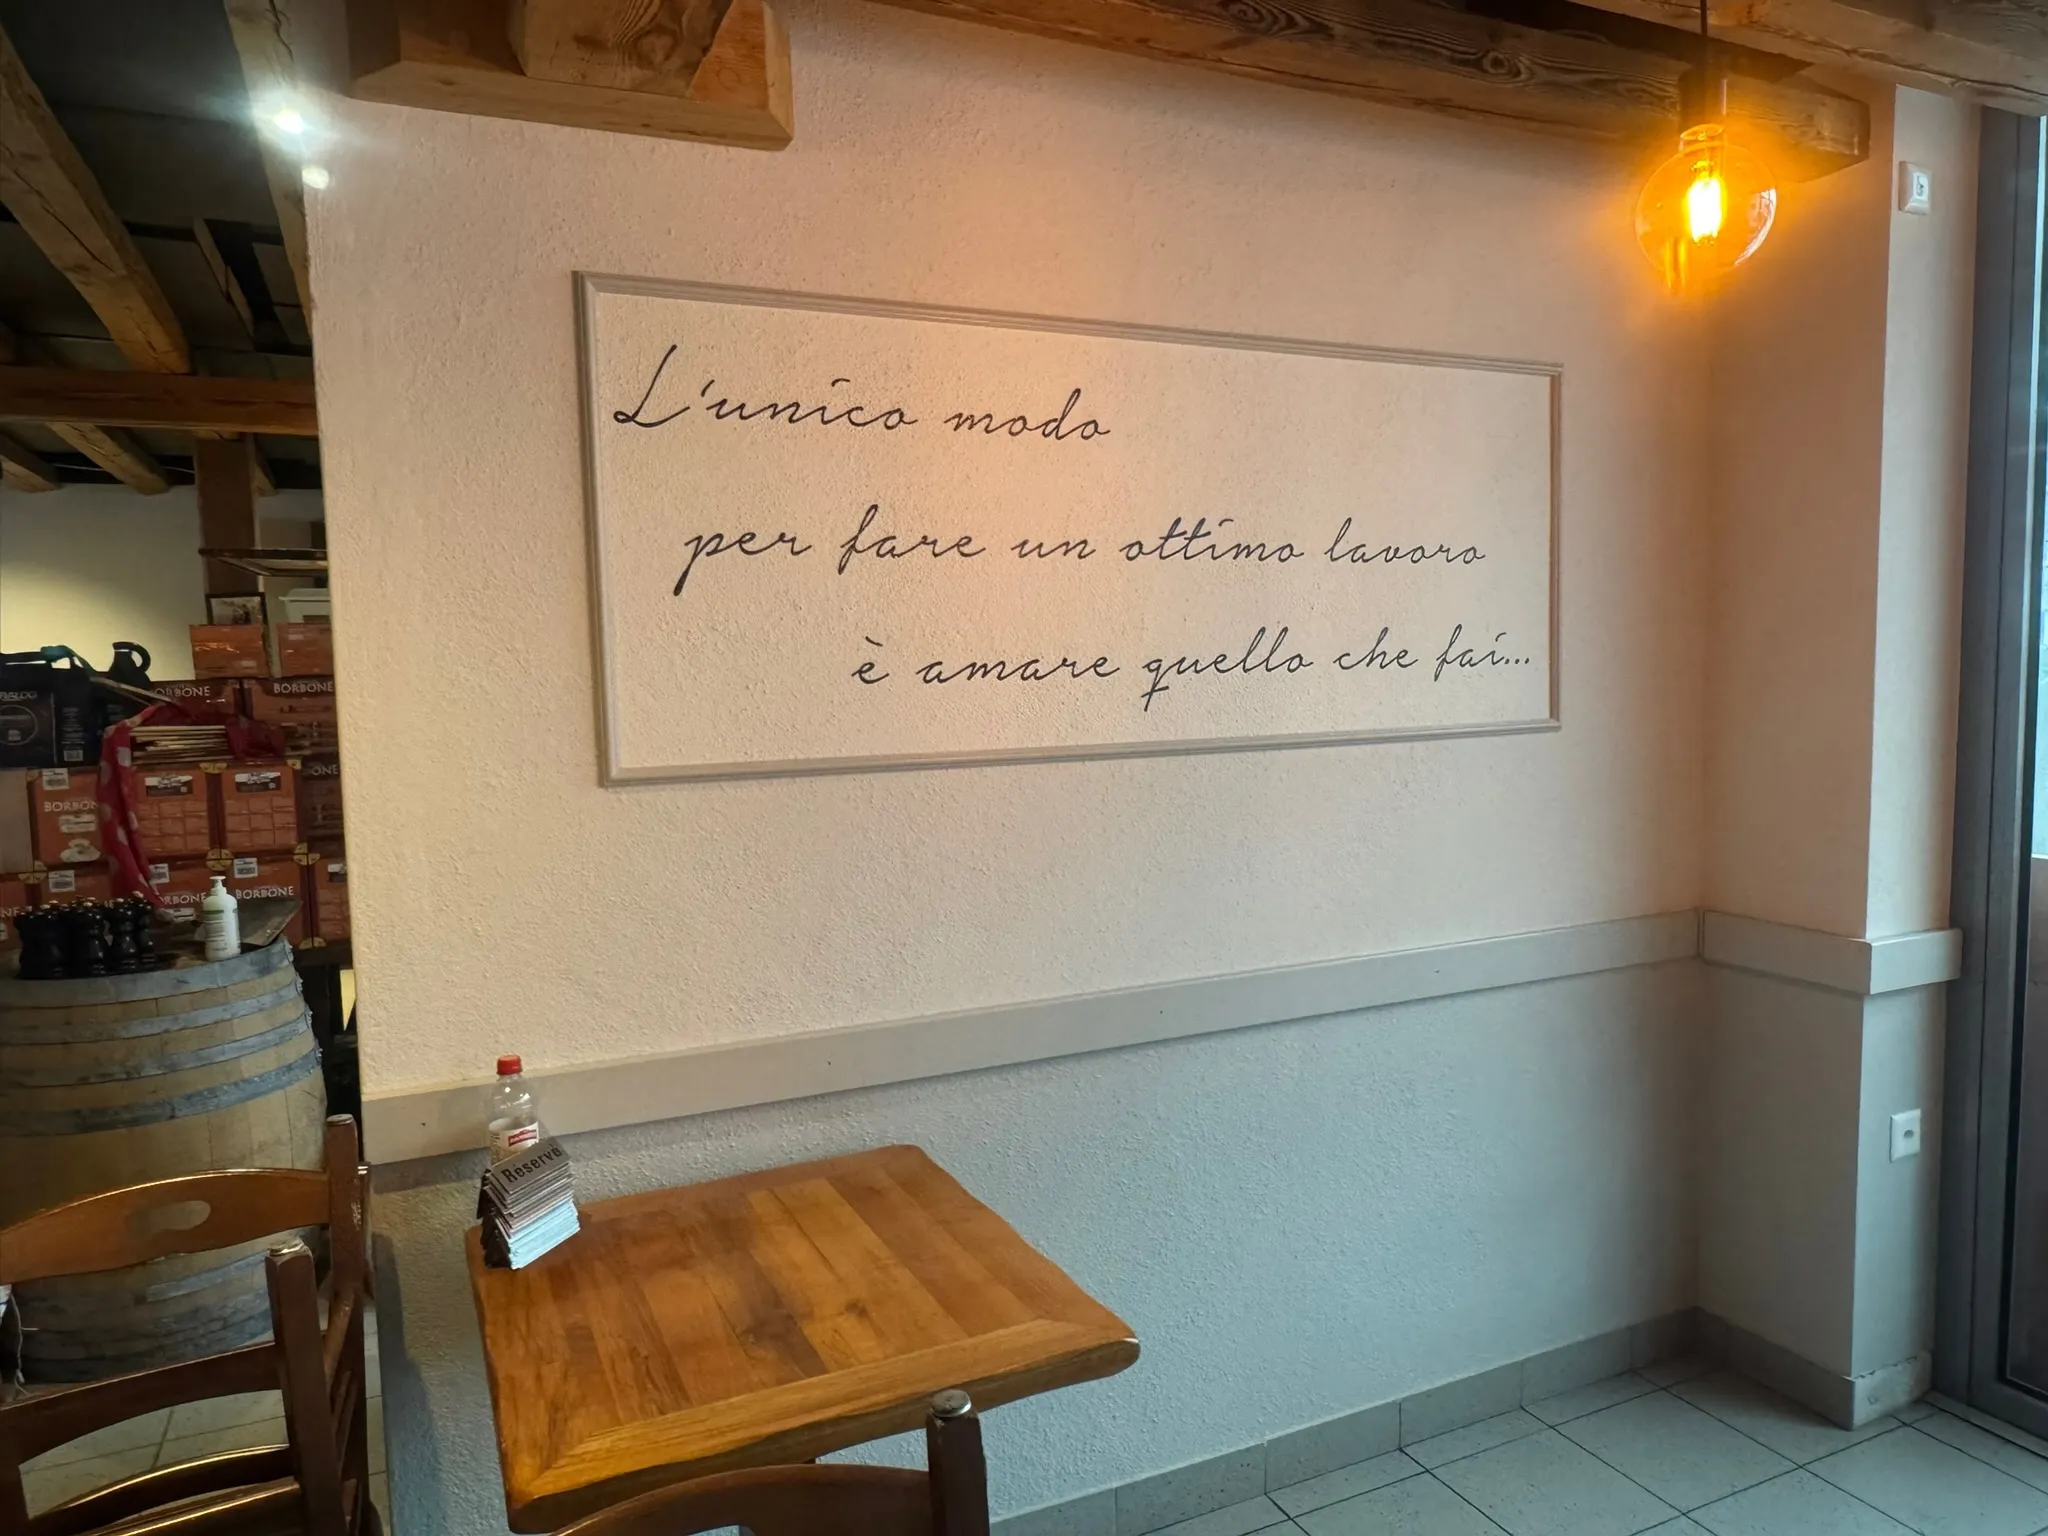 L'unico modo
per fare un ottimo lavoro
è amare quello che fai...
BORBONE
BORBONE
BORBONE
BORBONE
Reservé